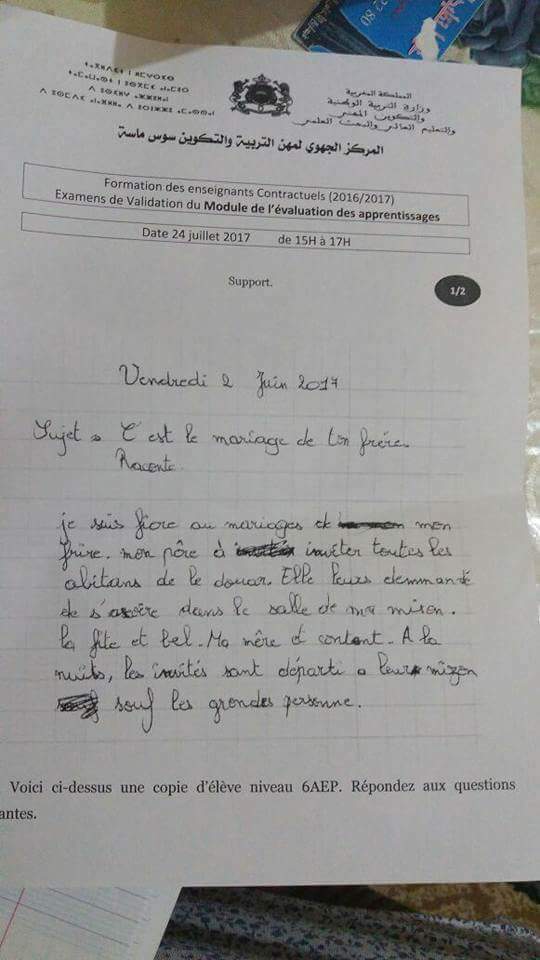 المملكة المغربية
وزارة التربية الوطنية
والتكوين المهني
والتعليم العالي والبحث العلمي
المركز الجهوي لمهن التربية والتكوين سوس ماسة
Formation des enseignants Contractuels (2016/2017)
Examens de Validation du Module de l'évaluation des apprentissages
Date 24 juillet 2017 de 15H à 17H
Support.
1/2
Vendredi 2 Juin 2017
Sujet : C'est le mariage de ton frère.
Raconte.
je suis fiore au mariages d mon
frire. mon père à invéter toutes les
abitans de le douar. Elle leurs demmande
de s'asoire dans le salle de ma mison.
la fite et bel. Ma mère et content. A la
nuits, les invités sant départi a leur mizon
souf les grondes personne.
Voici ci-dessus une copie d'élève niveau 6AEP. Répondez aux questions
antes.